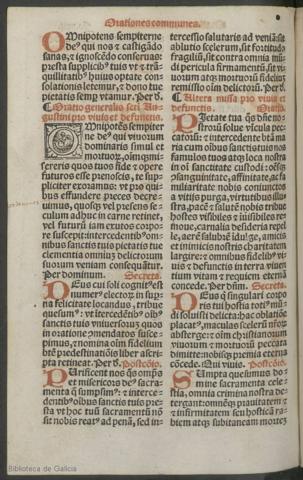 Orationes communes.
OMnipotens sempiterne
de⁹ qui nos ⁊ castigādo
sanas, ⁊ ignoscēdo conseruas:
presta supplicib⁹ tuis vt ⁊ trā-
quillitatib⁹ huius optate con-
solationis letemur, ⁊ dono tue
pietatis semꝑ vtamur. Per d.
Oratio generalis scti Au-
gustini pro viuis et defunctis.
OMnipotēs sempiter
ne de⁹ qui viuorum
dominaris simul et
mortuoꝝ, oīm q̄ mi-
sereris quos tuos fide ⁊ opere
futuros esse prenoscis, te sup-
pliciter exoramus: vt pro qui-
bus effundere preces decre-
uimus, quosq̄ vel presens se-
culum adhuc in carne retinet,
vel futurū iam exutos corpo-
re suscepit intercedentib⁹ om-
nibus sanctis tuis pietatis tue
clementia omniū delictorum
suorum veniam consequātur.
Per dominum. Secreta.
DEus cui soli cognit⁹ est
numer⁹ electoꝝ in suꝑ-
na felicitate locandus, tribue
quesum⁹: vt intercedētib⁹ oīb⁹
sanctis tuis vniuersoꝝ quos
in oratione ꝯmendatos susce-
pimus, ⁊ nomina oīm fidelium
btē predestinatiōis liber ascri-
pta retineat. Per d. Postcōio.
PUrificent nos q̄s omps
et misericors de⁹ sacra-
menta q̄ sumpsim⁹: ⁊ interce-
dentib⁹ oībus sanctis tuis pre-
sta vt hoc tuū sacramentū nō
sit nobis reat⁹ ad penā, sed in-
tercessio salutaris ad veniā: sit
ablutio scelerum, sit fortitudo
fragiliū, sit contra omnia mū-
di pericula firmamentū, sit vi-
uorum atq̄ mortuorū fidelium
remissio oīm delictoꝝ. Per d.
Altera missa pro viuis et
defunctis. Oratio.
PIetate tua q̄s dñe no-
strorū solue vīcula pec-
catorū: ⁊ intercedente btā ma-
ria cum oībus sanctis tuis nos
famulos tuos atq̄ loca nostra
in oī sanctitate custodi: oēsq̄
cōsanguinitate, affinitate, ac fa-
miliaritate nobis coniunctos
a vitijs purga, virtutibus illu-
stra, pacē ⁊ salutē nobis tribue
hostes visibiles ⁊ īuisibiles re-
moue, carnalia desideria repel-
le, aerē salubrē īdulge, amicis
et inimicis nostris charitatem
largire: ⁊ omnibus fidelib⁹ vi-
uis ⁊ defunctis in terra viuen-
tium vitam ⁊ requiem eternā
concede. Per dñm. Secreta.
DEus q̄ singulari corpo-
ris tui hostia totī⁹ mū-
di soluisti delicta: hac oblatiōe
placat⁹, maculas scelerū nr̄oꝝ
absterge: ⁊ oīm christianorum
viuorū atq̄ mortuorum peccata
dimitte: nobisq̄ premia eterna
concede. Qui viuis. Postcōio.
SUmpta quesumus do-
mine sacramenta cele-
stia, omnia crimina nostra de-
tergant: omnēq̄ prauitatem ⁊
⁊ infirmitatem seu hosticā ra-
biem atq̄ subitaneam mortez
Biblioteca de Galicia